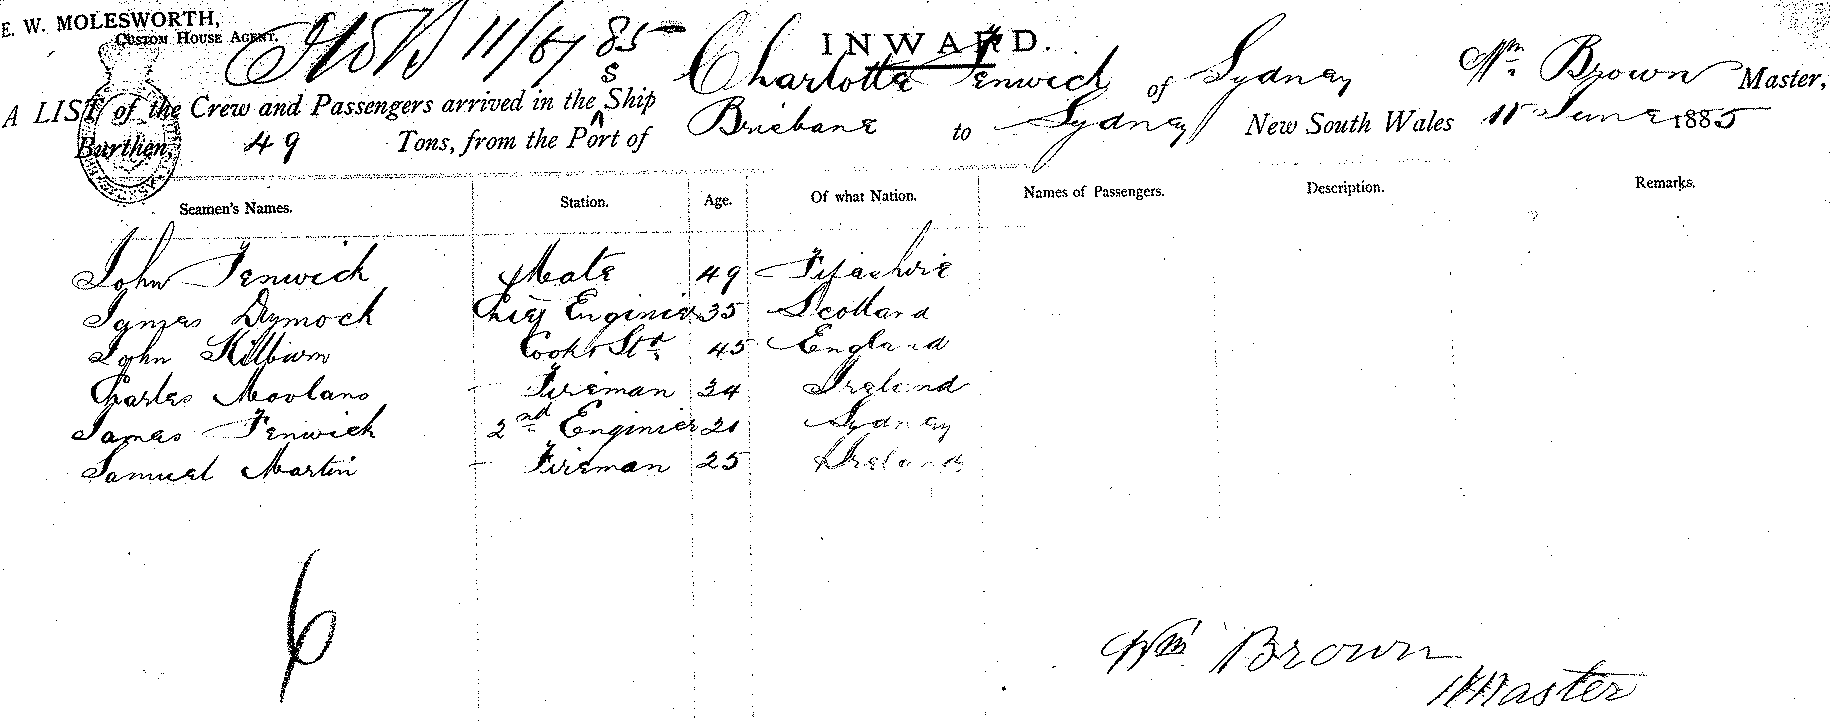 E. W. MOLESWORTH,
CUSTOM HOUSE AGENT.
11/6/85
INWARD.
A LIST of the Crew and Passengers arrived in the S Ship Charlotte Fenwick of Sydney Wm Brown Master,
Burthen, 49 Tons, from the Port of Brisbane to Sydney New South Wales 11 June 1885
Seamen's Names. Station. Age. Of what Nation. Names of Passengers. Description. Remarks.
John Fenwick Mate 49
James Dymock Chief Enginier 35 Scotland
John Kilburn Cook & Std 45 England
Charles Fireman 24 Ireland
James Fenwick 2nd Enginier 21 Sydney
Samuel Martin Fireman 25 Ireland
6
Wm Brown
Master